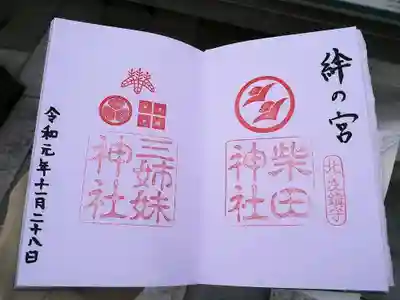 絆の宮
北之鎮守
柴田
神社
三姉妹
神社
令和元年十一月二十八日